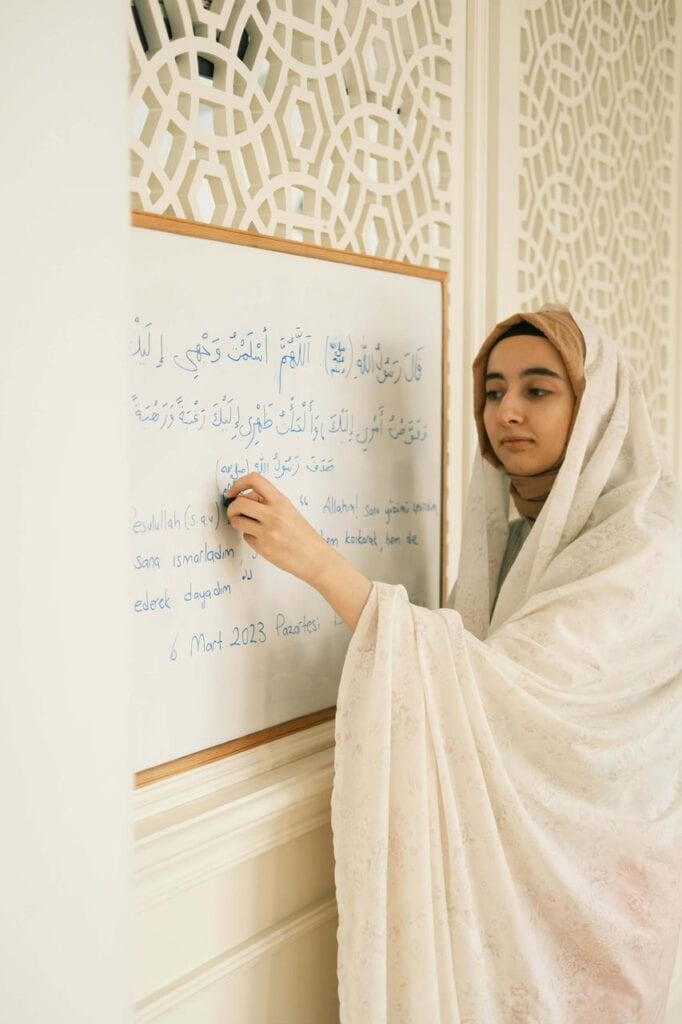 قَالَ رَسُولُ اللهِ (ﷺ) اَللَّهُمَّ أَسْلَمْتُ وَجْهِي إِلَيْكَ
وَفَوَّضْتُ أَمْرِي إِلَيْكَ، وَأَلْجَأْتُ ظَهْرِي إِلَيْكَ رَغْبَةً وَرَهْبَةً
صَدَقَ رَسُولُ اللهِ (ﷺ)
Resulullah (s.a.v) “ Allahım! sana yüzümü çevirdim
sana ismarladım, hem korkarak, hem de
ederek dayadım ”
6 Mart 2023 Pazartesi